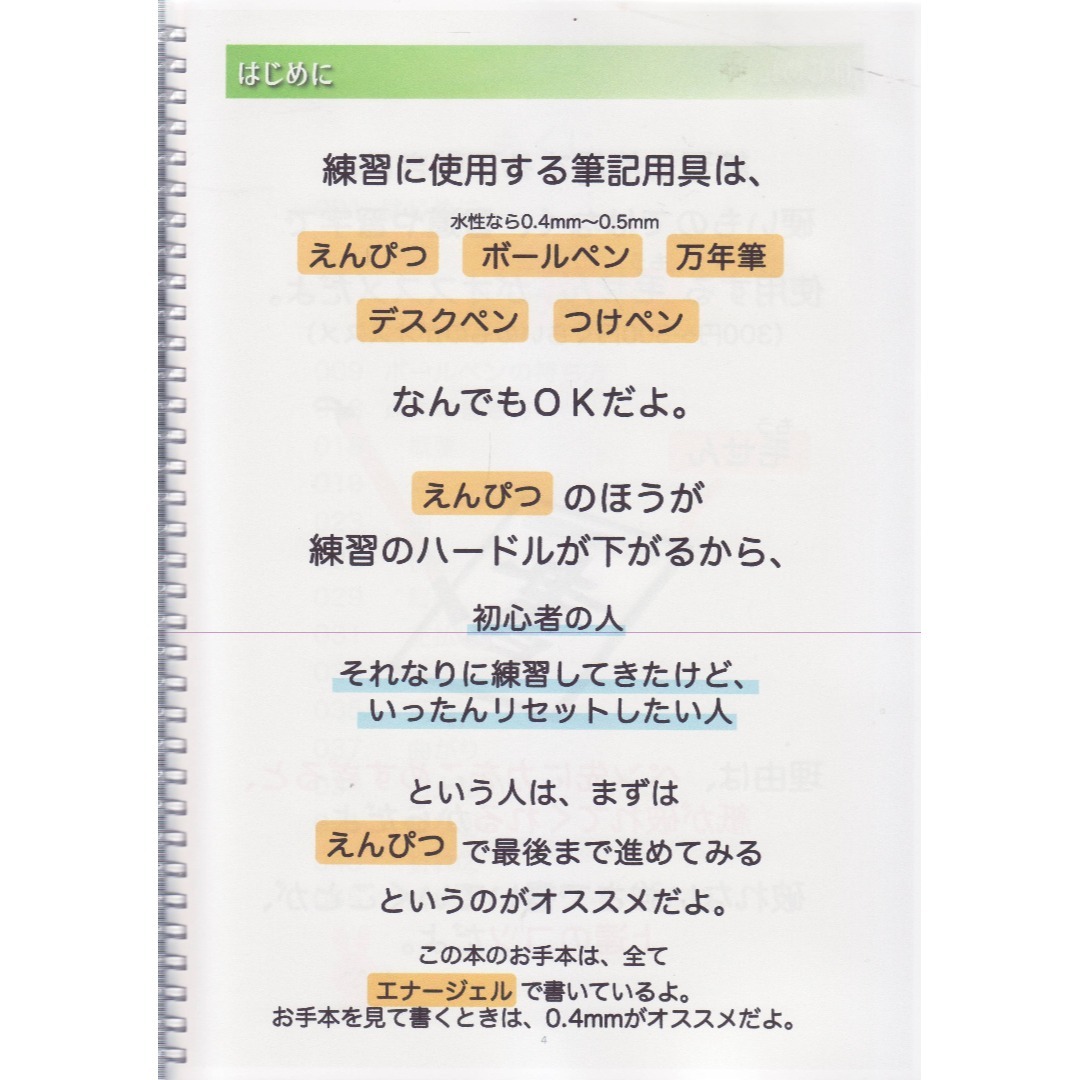 はじめに
練習に使用する筆記用具は、
水性なら0.4mm〜0.5mm
えんぴつ ボールペン 万年筆
デスクペン つけペン
なんでもＯＫだよ。
えんぴつ のほうが
練習のハードルが下がるから、
初心者の人
それなりに練習してきたけど、
いったんリセットしたい人
という人は、まずは
えんぴつ で最後まで進めてみる
というのがオススメだよ。
この本のお手本は、全て
エナージェル で書いているよ。
お手本を見て書くときは、0.4mmがオススメだよ。
4